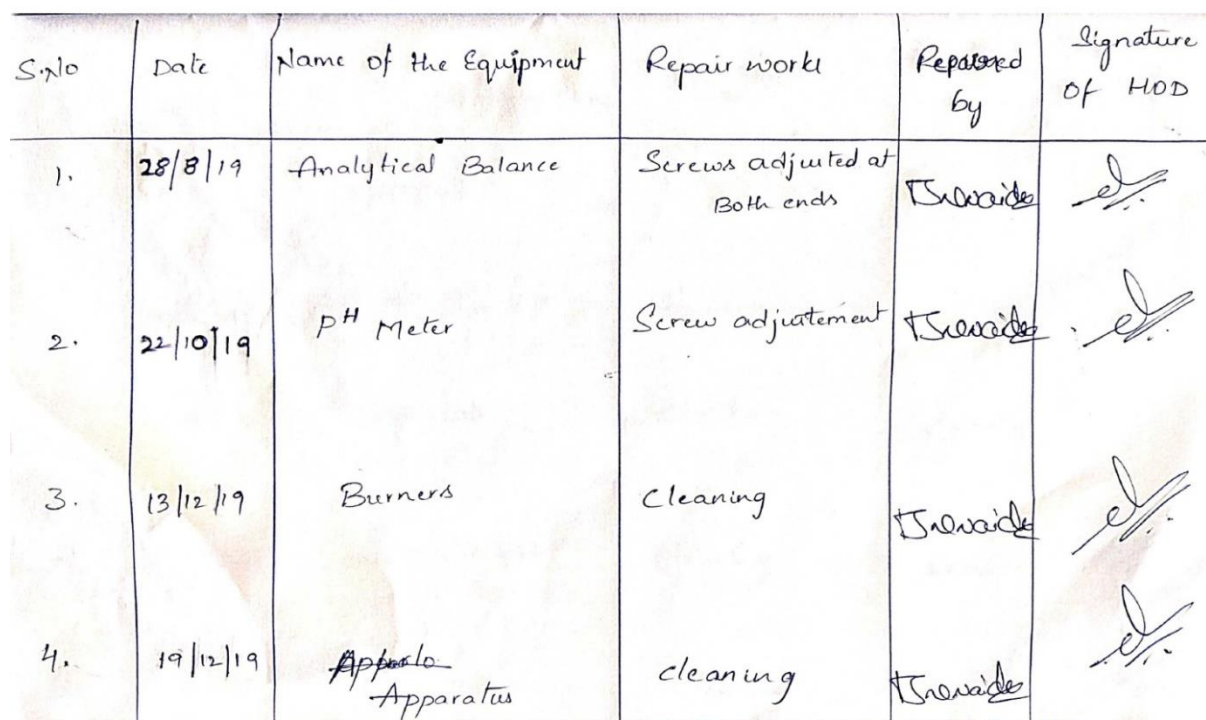 S.No Date Name of the Equipment Repair work Repaired by Signature Of HOD
1. 28/8/19 Analytical Balance Screws adjusted at
Both ends
2. 22/10/19 PH Meter Screw adjustement
3. 13/12/19 Burners Cleaning
4. 19/12/19
Apparatus cleaning